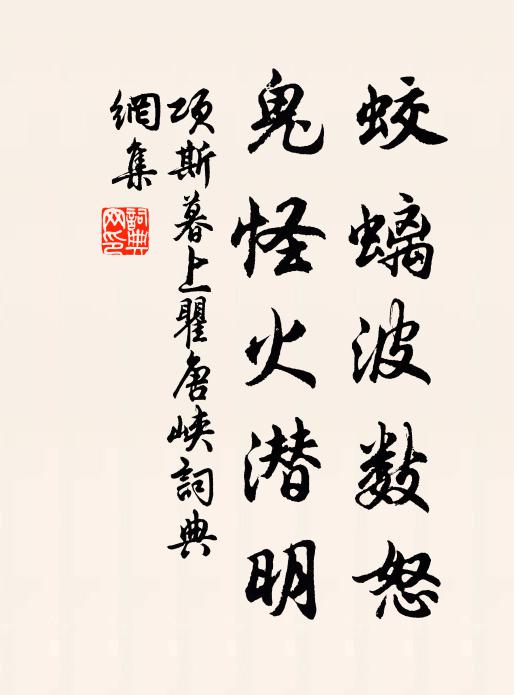 蛟螭波数怒
鬼怪火潜明
项斯暮上瞿唐峡词典
網集
詞典网印